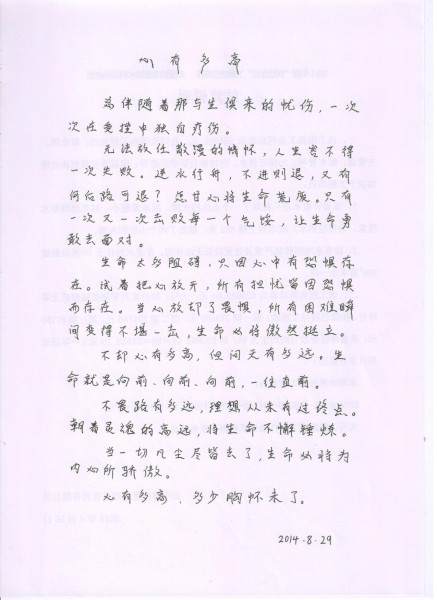 心有多高
为伴随着那与生俱来的忧伤，一次
次在受挫中独自疗伤。
无法放任散漫的情怀，人生容不得
一次失败。逆水行舟，不进则退，又有
何后路可退？怎甘心将生命荒废。只有
一次又一次去败每一个气馁，让生命勇
敢去面对。
生命太多阻碍，只因心中有恐惧存
在。试着把心放开，所有担忧皆因恐惧
而存在。当心放却了畏惧，所有困难瞬
间变得不堪一击，生命必将傲然挺立。
不却心有多高，但问天有多远。生
命就是向前、向前、向前，一往直前。
不畏路有多远，理想从未有过终点。
朝着灵魂的高远，将生命不懈锤炼。
当一切凡尘尽皆去了，生命必将为
内心所骄傲。
心有多高，多少胸怀未了。
2014.8.29